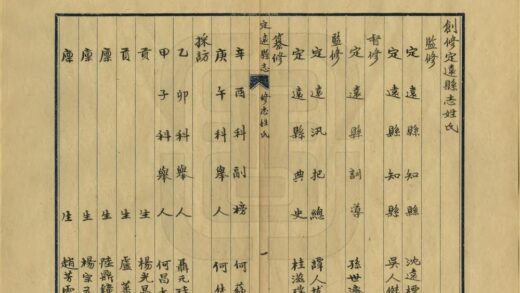 創修定遠縣志姓氏
監修
定遠縣知縣 沈遠標
定遠縣知縣 吳人傑
督修
定遠縣訓導 孫世
監修
定遠汛把總 譚人
定遠縣典史 桂滋
纂修
定遠縣志 修志姓氏 一
辛酉科副榜 何
庚午科舉人 何
採訪
乙卯科舉人 聶元
甲子科舉人 何昌
貢生 楊光
貢生 盧
廩生 陸鼎
廩生 楊宗
廩生 趙芳